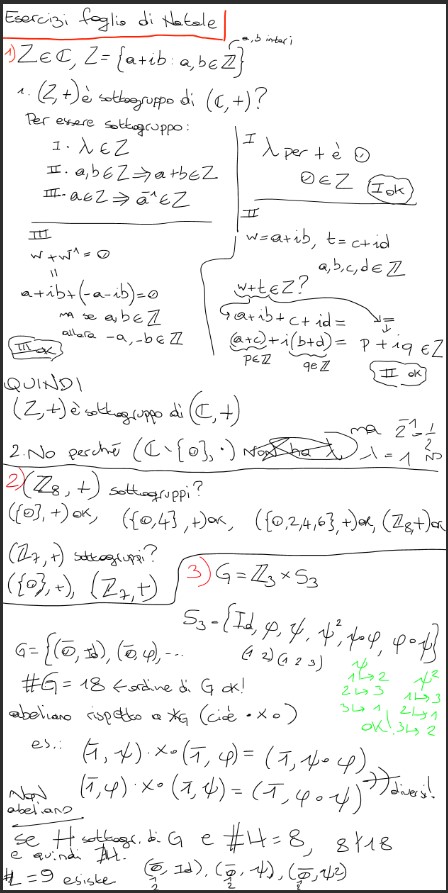 Esercizi foglio di Natale
1) Z∈ℂ, Z = {a+ib : a,b∈ℤ} a,b interi
1. (Z,+) è sottogruppo di (ℂ,+)?
Per essere sottogruppo:
I. λ∈Z
II. a,b∈Z ⇒ a+b∈Z
III. a∈Z ⇒ a⁻¹∈Z
I λ per + è 0
0∈Z I ok
II
w=a+ib, t=c+id
a,b,c,d∈ℤ
w+t∈Z?
a+ib+c+id =
(a+c)+i(b+d) = p+iq ∈Z
p∈ℤ q∈ℤ
II ok
III
w+w⁻¹=0
=
a+ib+(-a-ib)=0
ma se a,b∈ℤ
allora -a,-b∈ℤ
III ok
QUINDI
(Z,+) è sottogruppo di (ℂ,+)
2. No perché (ℂ\{0},·) λ=1 ma 2⁻¹=1/2 no
2) (ℤ₈,+) sottogruppi?
({0},+) ok, ({0,4},+) ok, ({0,2,4,6},+) ok, (ℤ₈,+) ok
(ℤ₇,+) sottogruppi?
({0},+), (ℤ₇,+)
3) G=ℤ₃×S₃
S₃={Id, φ, ψ, ψ², ψ∘φ, φ∘ψ}
(1 2) (1 2 3)
G={(0̄,Id),(0̄,φ),...
ψ
1↦2
2↦3
3↦1
ψ²
1↦3
2↦1
3↦2
ok!
#G=18 ← ordine di G ok!
abeliano rispetto a *G (cioè ·×∘)
es.: (1̄,ψ)·×∘(1̄,φ)=(1̄,ψ∘φ)
(1̄,φ)·×∘(1̄,ψ)=(1̄,φ∘ψ) diversi!
Non
abeliano
se H sottogr. di G e #H=8, 8∤18
e quindi ∄.
=9 esiste (0̄,Id),